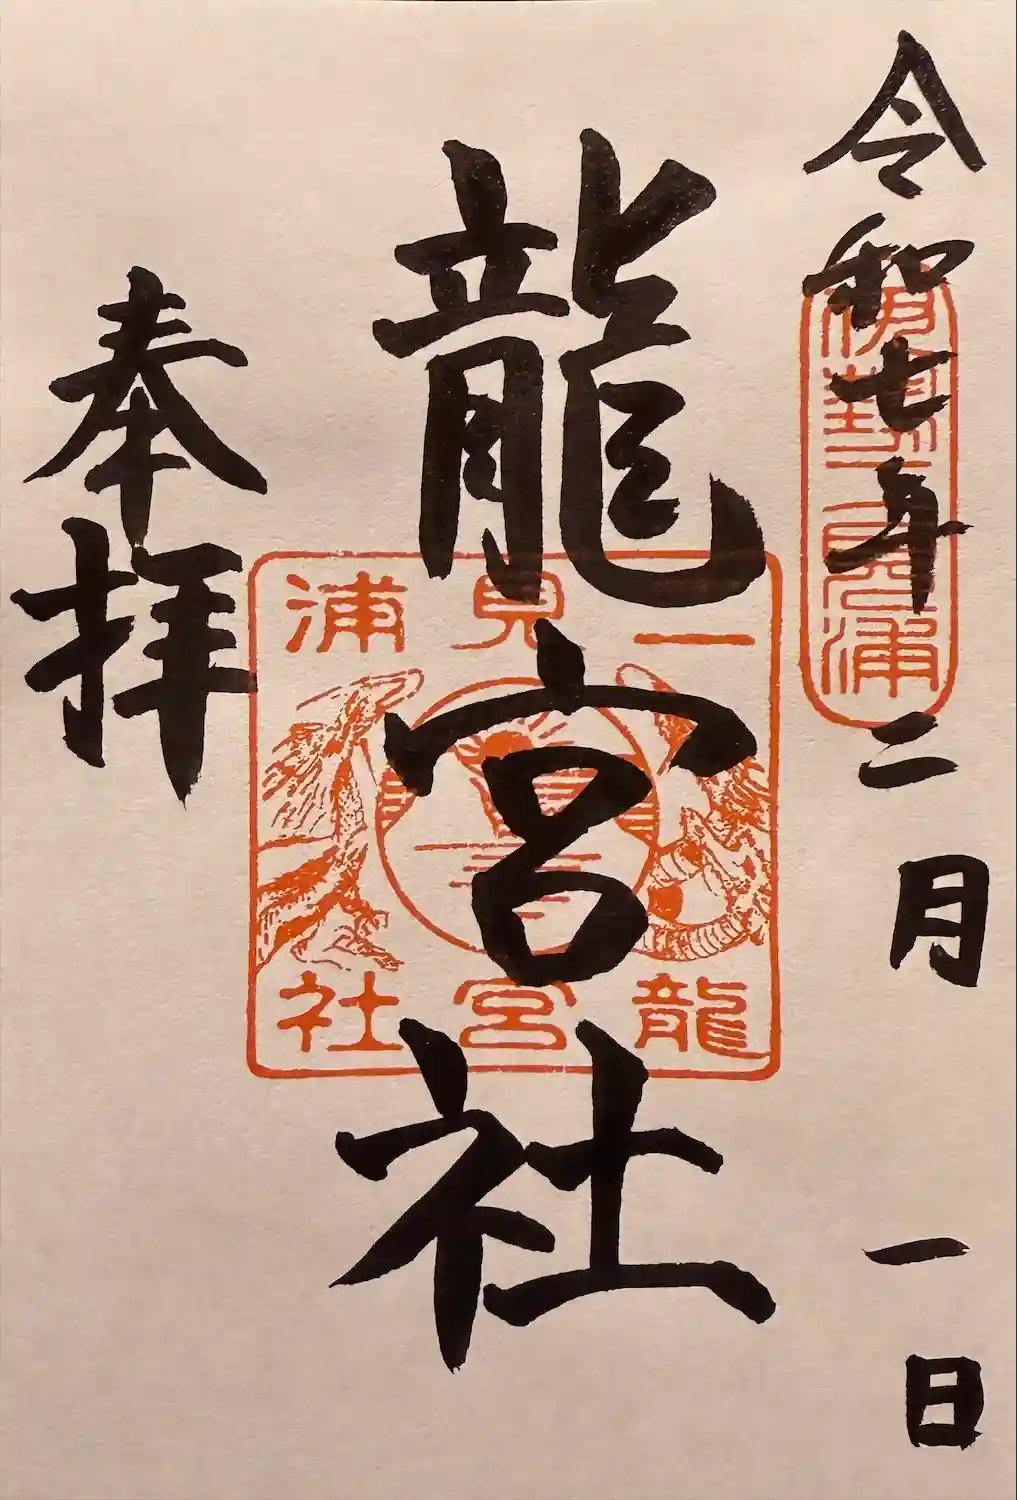 令和七年二月一日
伊勢二見浦
龍宮社
二見浦
龍宮社
奉拝